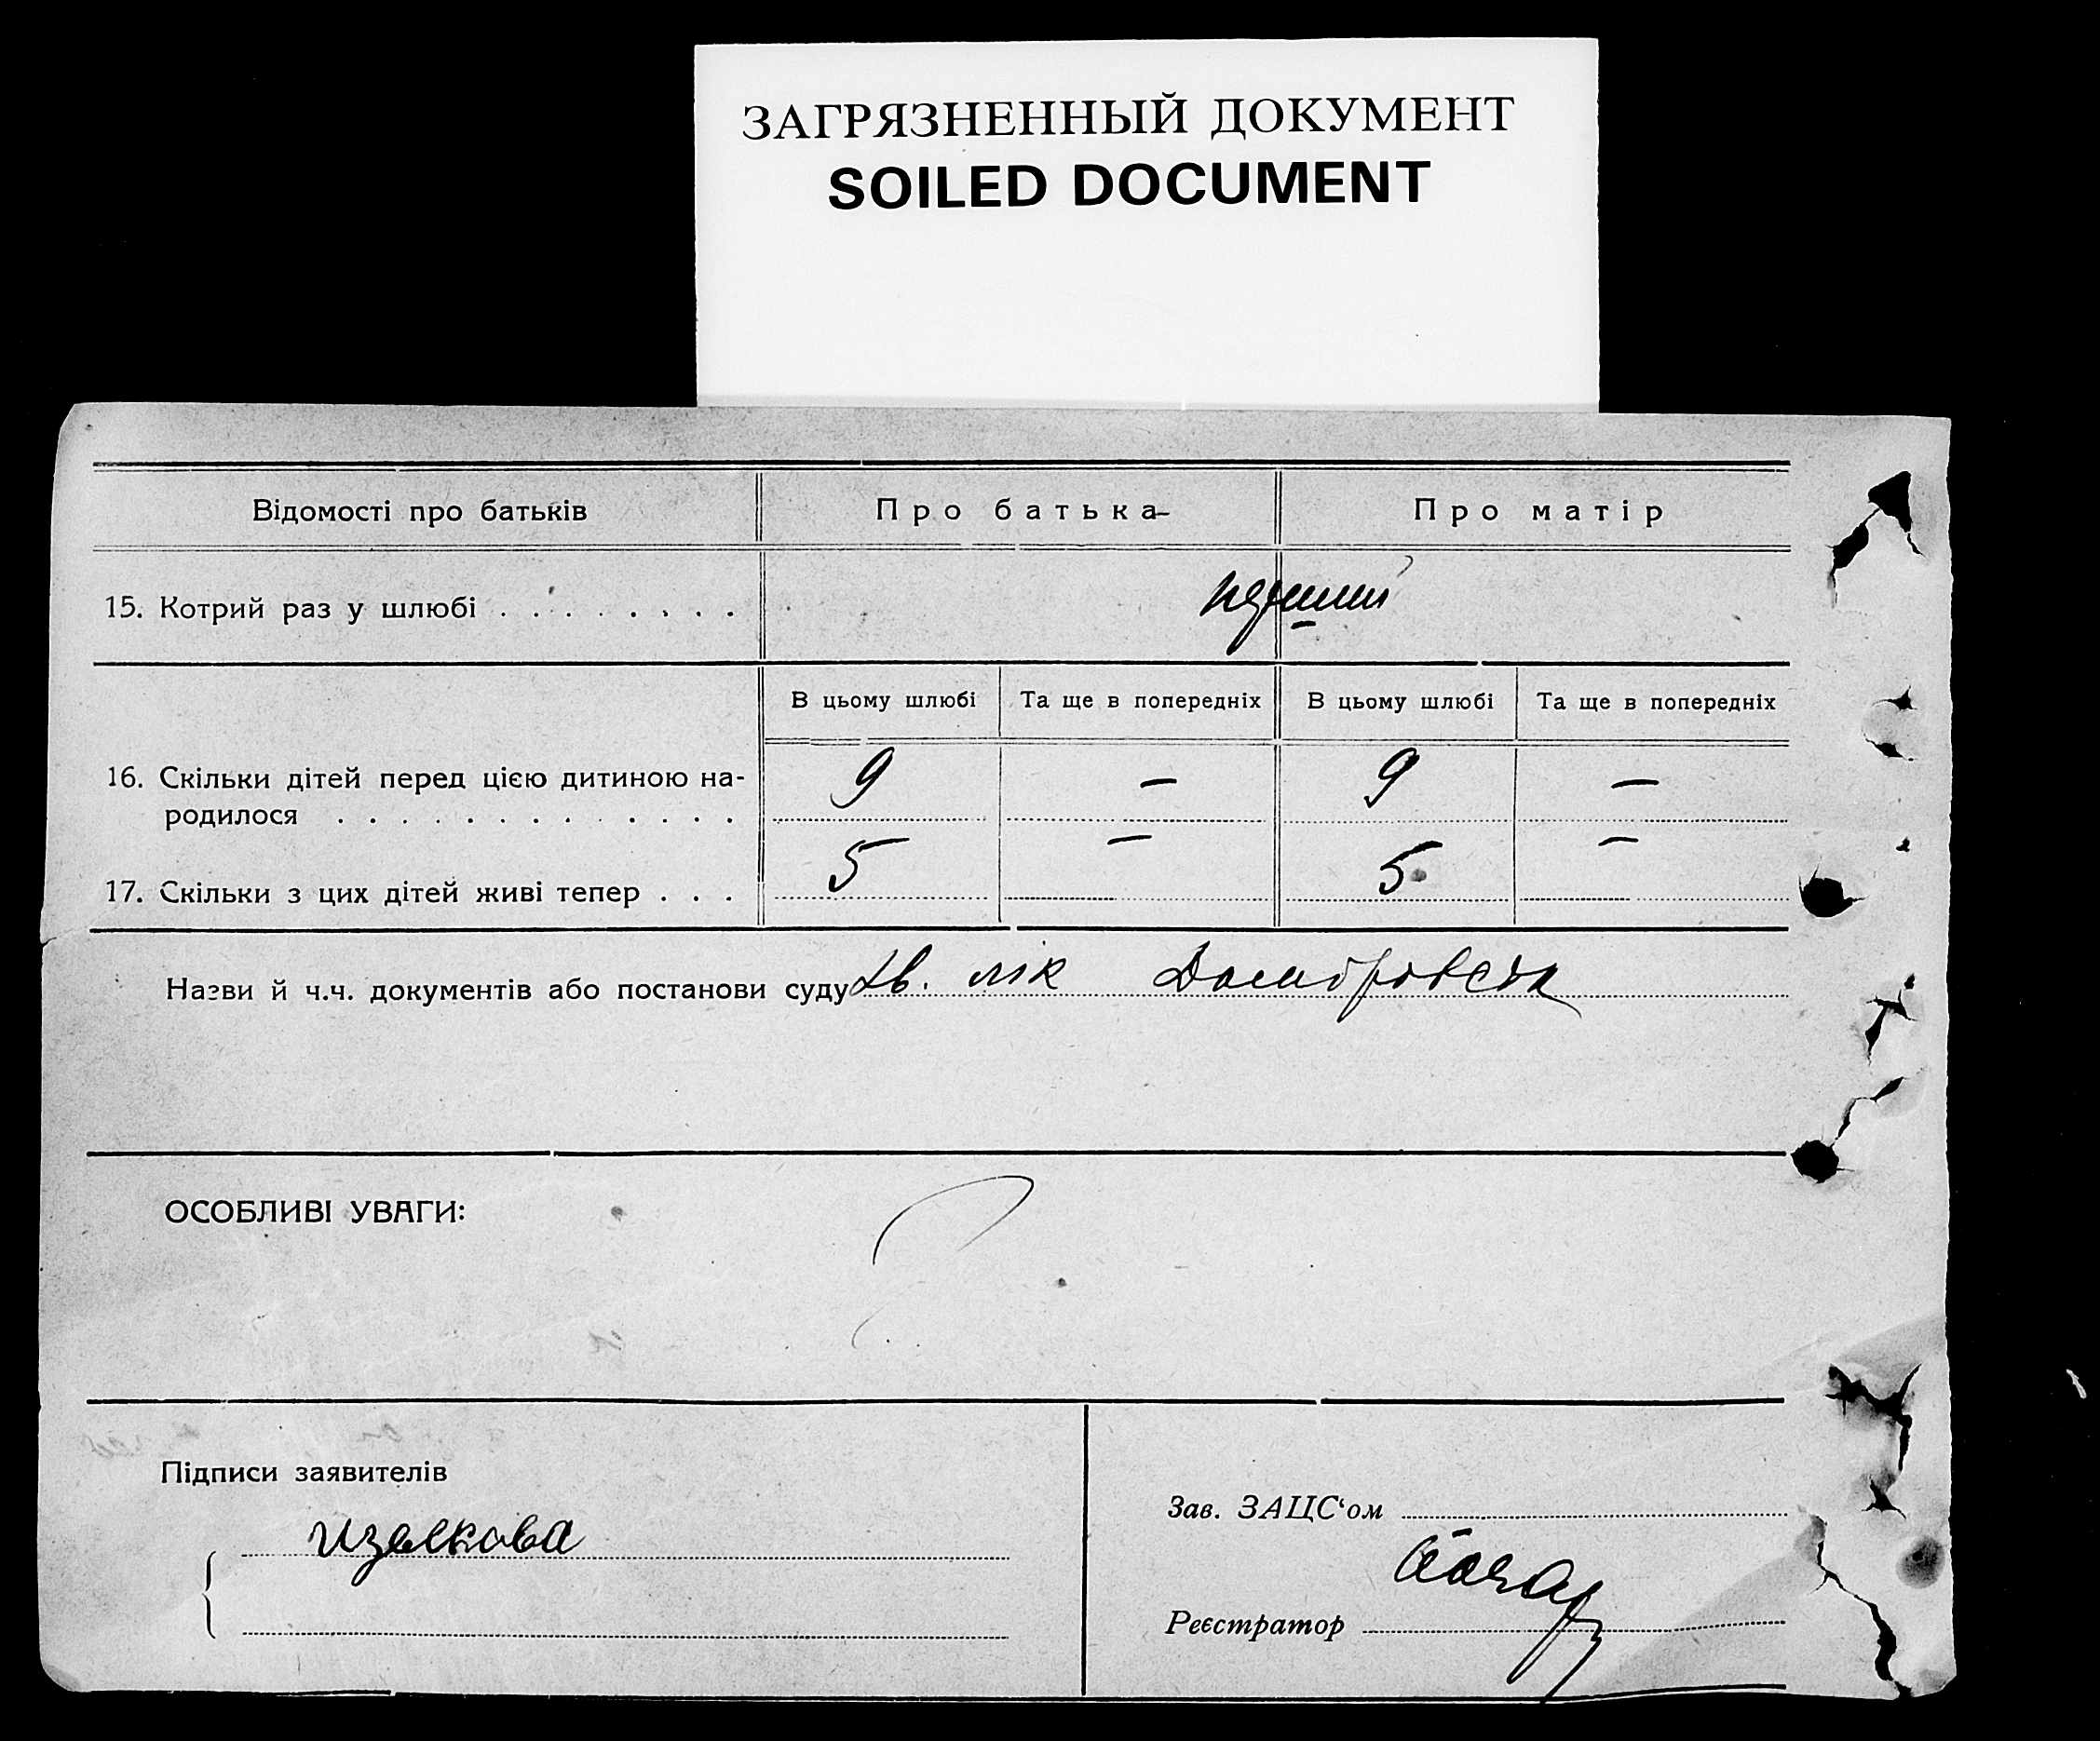 ЗАГРЯЗНЕННЫЙ ДОКУМЕНТ
SOILED DOCUMENT
Відомості про батьків Про батька Про матір
15. Котрий раз у шлюбі . . . . . . . . перший
В цьому шлюбі Та ще в попередніх В цьому шлюбі Та ще в попередніх
16. Скільки дітей перед цією дитиною на-
родилося . . . . . . . . . . . . . 9 — 9 —
17. Скільки з цих дітей живі тепер . . . 5 — 5 —
Назви й ч.ч. документів або постанови суду лік
ОСОБЛИВІ УВАГИ:
Підписи заявителів
Зав. ЗАЦС‘ом
Реєстратор